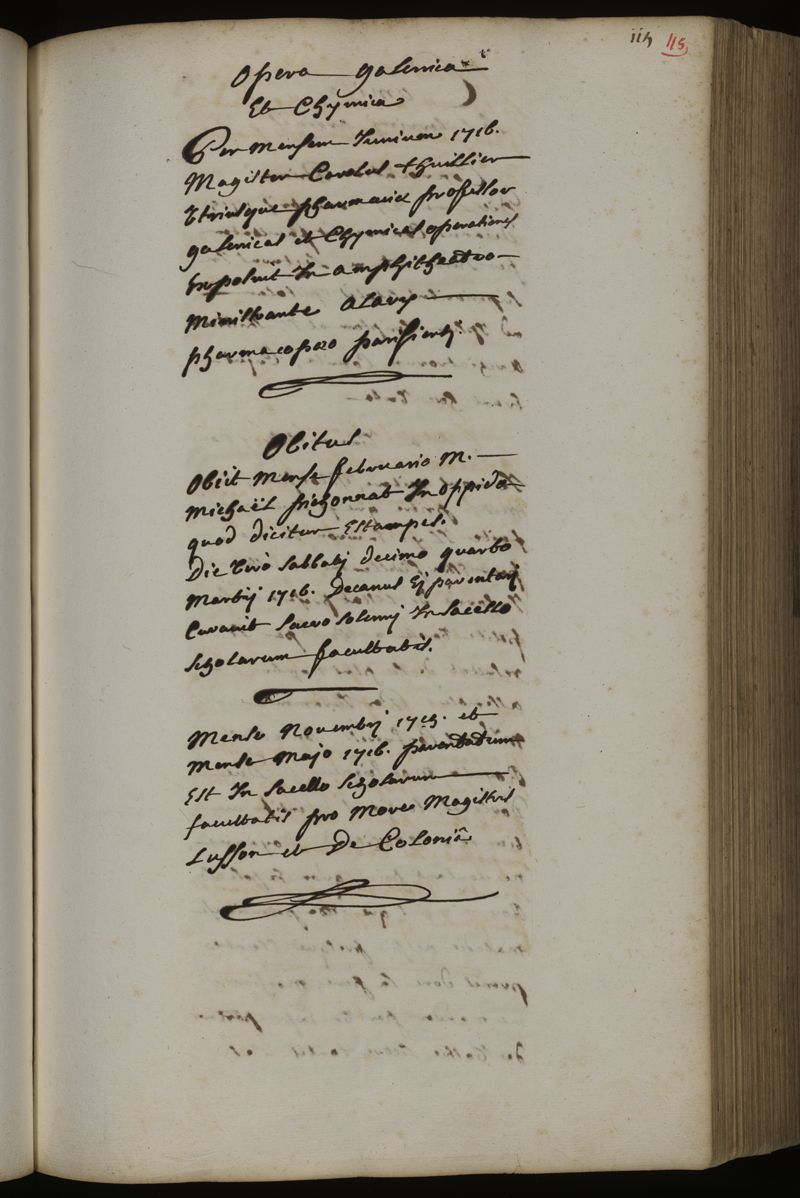 114 115
Opera galenica
Et Chymica
Per Mensem Junium 1716.
Magister Carolus Thuillier
Utriusque pharmaciæ professor
galenicas et Chymicas operationes
Exposuit In amphitheatro
Ministrante alary
pharmacopæo parisiensi.
Obitus
Obiit Mense februario M.
Michaël pichonnat In oppido
quod dicitur Estampes.
Die Vero sabbatj decimo quarto
Martij 1716. Decanus Ej parentarj
Curavit sacro solemnj In sacello
scholarum facultatis.
Mense Novembrj 1715. et
Mense Majo 1716. parentatum
Est In sacello scholarum
facultatis pro More Magistris
Lusson et De Coloniâ